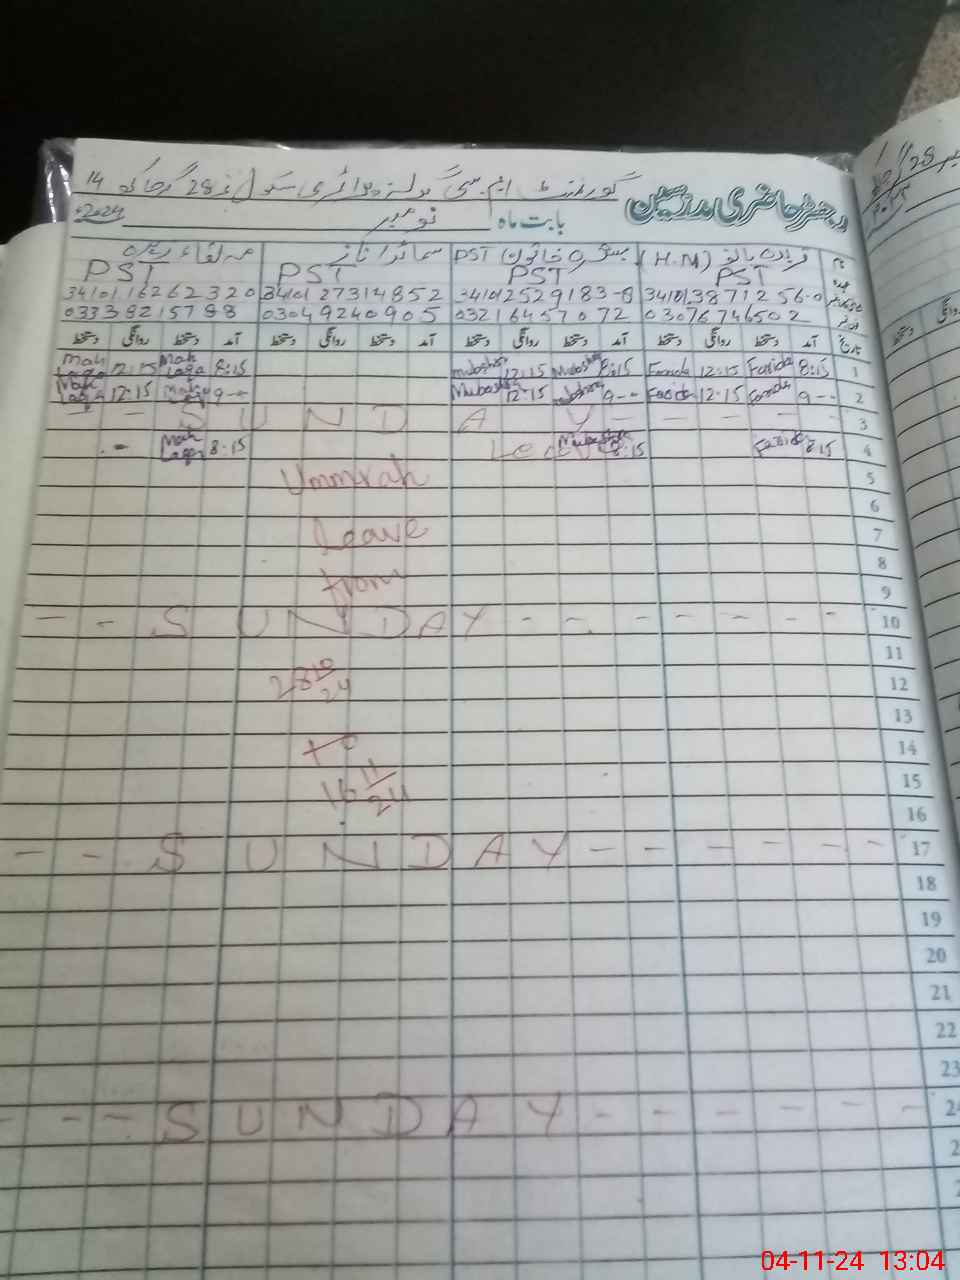 گورنمنٹ ایم سی گرلز پرائمری سکول نمبر 28 گرجاکھ 14
رجسٹر حاضری مدرسین بابت ماہ نومبر 2024ء
فریدہ بانو (H.M) مبشرہ خاتون PST سمائرا ناز مہ لقاء
PST PST PST PST
34101,3871256-0 34101,2529183-8 34101,27314852 34101,16262320
03076746502 03216457072 03049240905 03338215788
تاریخ آمد دستخط روانگی دستخط آمد دستخط روانگی دستخط آمد دستخط روانگی دستخط آمد دستخط روانگی دستخط
1 8:15 Farida 12:15 Farida 8:15 Mubashra 12:15 Mubashra 8:15 Mah Laqa 12:15 Mah Laqa
2 9-- Farida 12-15 Farida 9-- Mubashra 12-15 Mubashra 9-- Mah Laqa 12-15 Mah Laqa
- - S U N D A Y - - - - - 3
4 8:15 Farida 8:15 Mubashra Leave 8:15 Mah Laqa -
Ummrah 5
6
Leave 7
8
from 9
- - S U N D A Y - - - - - - 10
11
28 10/24 12
13
to 14
16 11/24 15
16
- - S U N D A Y - - - - - - 17
18
19
20
21
22
23
- - - S U N D A Y - - - - - - 24
04-11-24 13:04